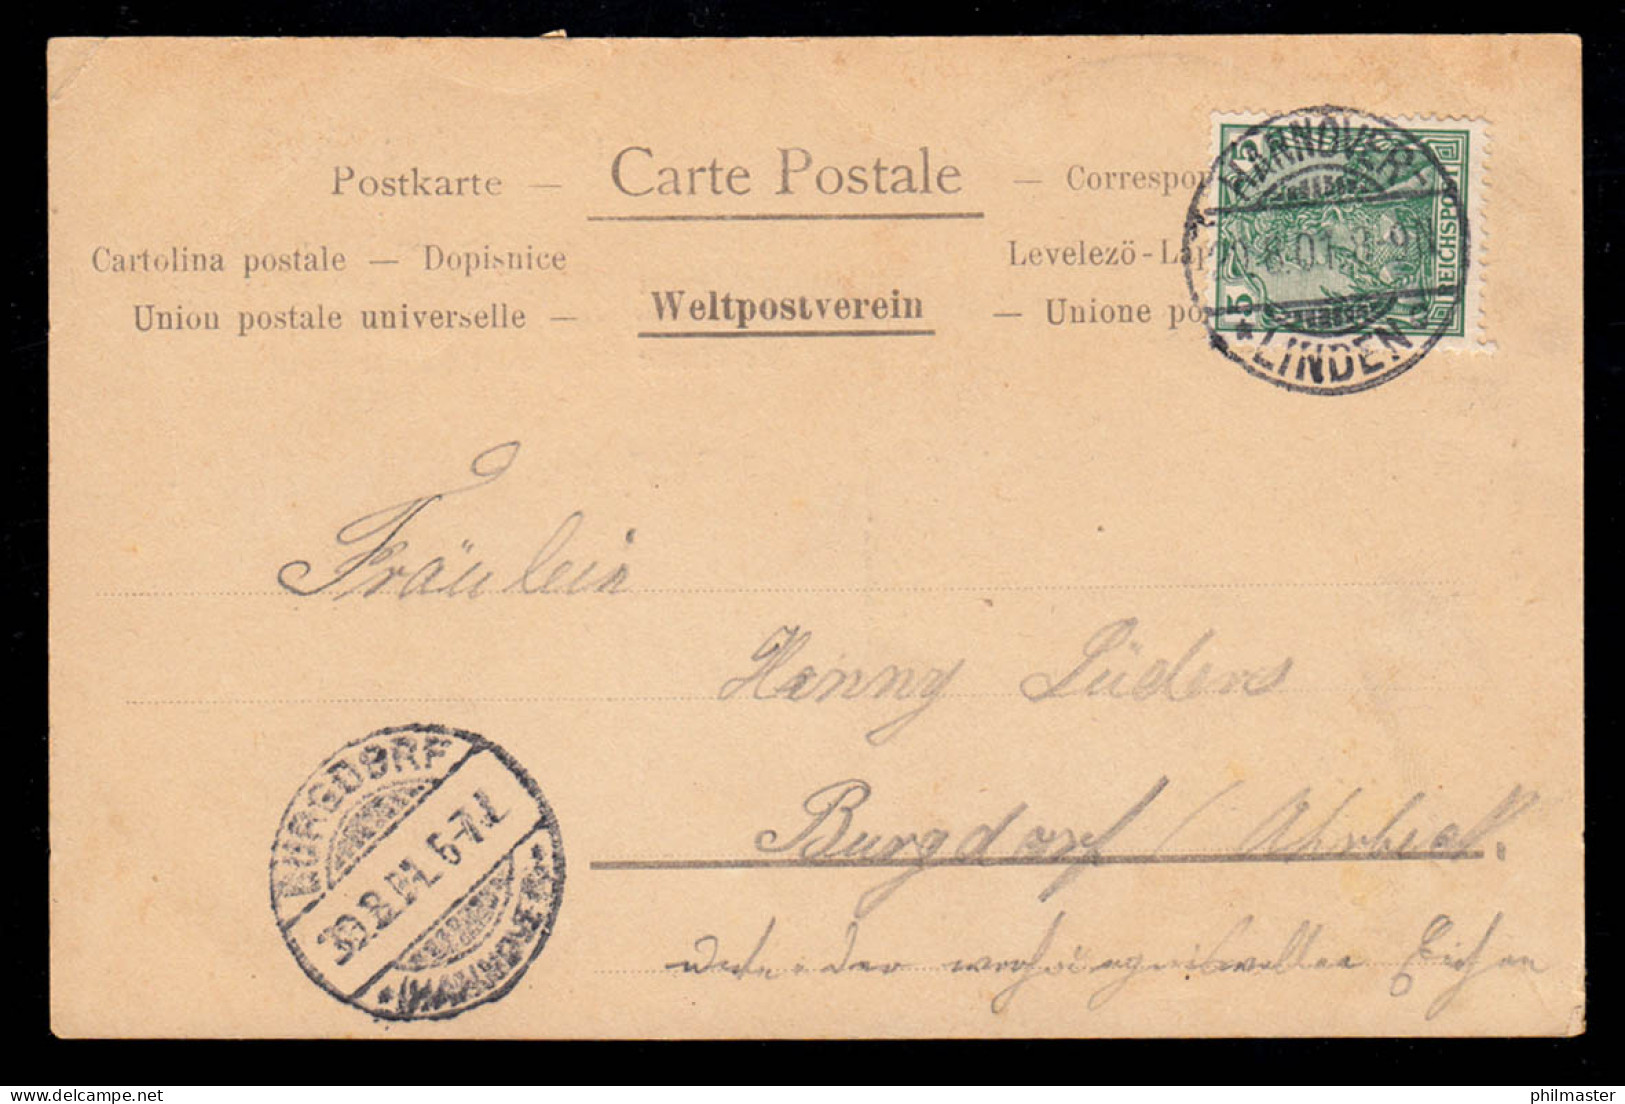 Postkarte — Carte Postale — Correspon
Cartolina postale — Dopisnice Levelező-Lap
Union postale universelle — Weltpostverein — Unione po
HANNOVER-
8.01.8-9
*LINDEN
5 5
REICHSPOST
Fräulein
Hanny Lüders
Burgdorf / Ahrbeck.
BURGDORF
30.8.01.6-7.
* (HANNOVER) *
Eichen
philmaster